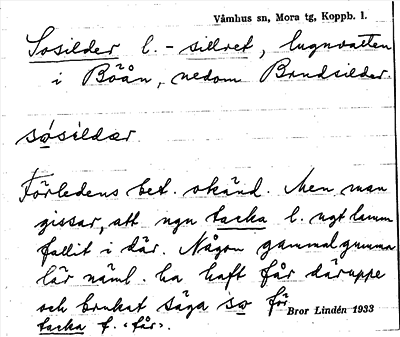 Våmhus sn, Mora tg, Koppb. l.
Sosilder l. -sillret, lugnvatten
i Böån, nedom Brudsilder.
søsildær
Förledens bet. okänd. Men man
gissar, att ngn tacka l. ngt lamm
fallit i där. Någon gammal gumma
lär näml. ha haft får däruppe
och brukat säga so för
tacka f. ‹får›.
Bror Lindén 1933